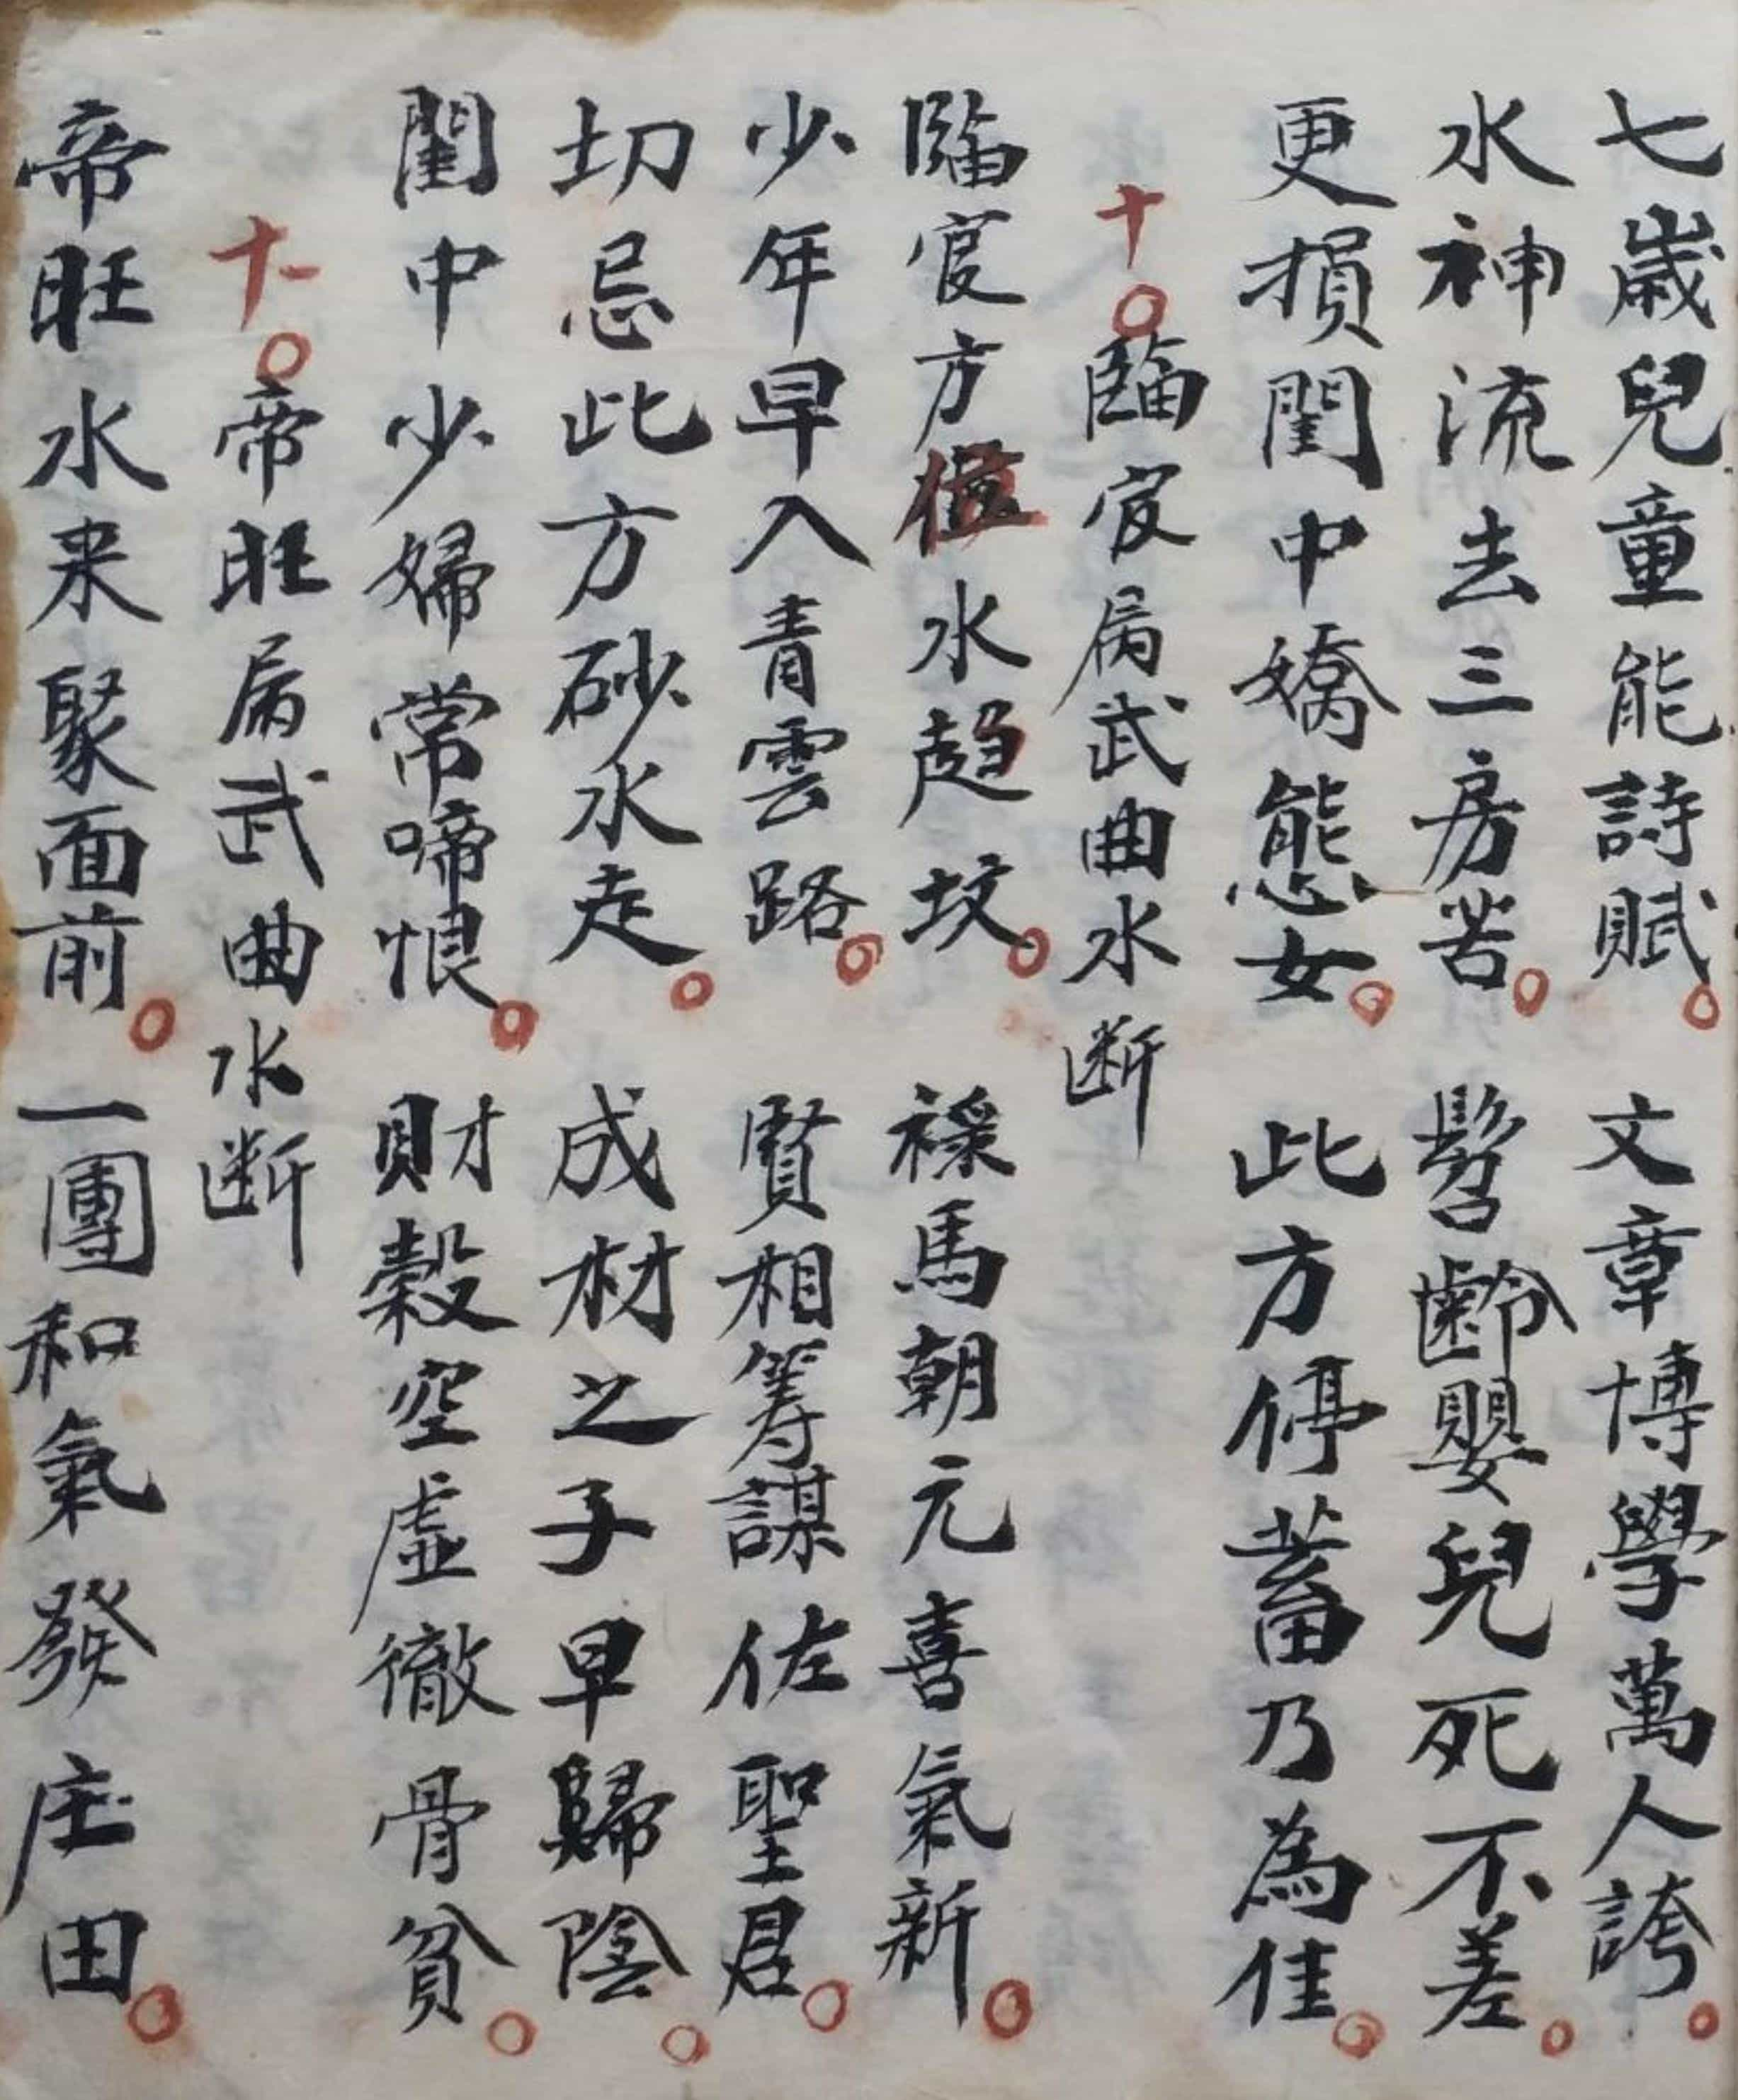 七歲兒童能詩賦。文章博學萬人誇。
水神流去三房苦。髫齡嬰兒死不差。
更損閨中嬌態女。此方停蓄乃為佳。
十〇臨官屬武曲水断
臨官方位水趋坟。祿馬朝元喜氣新。
少年早入青雲路。賢相筹謀佐聖君。
切忌此方砂水走。成材之子早歸陰。
閨中少婦常啼恨。財穀空虛徹骨貧。
十一〇帝旺屬武曲水断
帝旺水来聚面前。一團和氣發庄田。